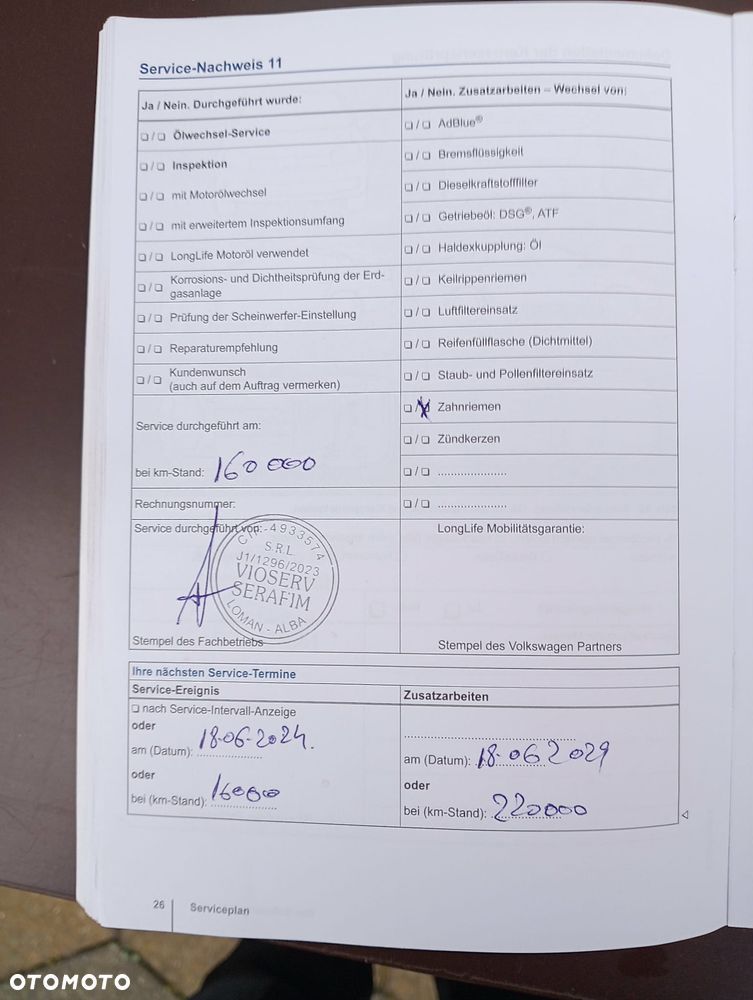 Service-Nachweis 11
Ja / Nein. Durchgeführt wurde:
❏ / ❏ Ölwechsel-Service
❏ / ❏ Inspektion
❏ / ❏ mit Motorölwechsel
❏ / ❏ mit erweitertem Inspektionsumfang
❏ / ❏ LongLife Motoröl verwendet
❏ / ❏ Korrosions- und Dichtheitsprüfung der Erd-
gasanlage
❏ / ❏ Prüfung der Scheinwerfer-Einstellung
❏ / ❏ Reparaturempfehlung
❏ / ❏ Kundenwunsch
(auch auf dem Auftrag vermerken)
Service durchgeführt am:
bei km-Stand: 160 000
Rechnungsnummer:
Service durchgeführt von:
4933574
S.R.L.
J1/1296/2023
VIOSERV
SERAFIM
LOMAN - ALBA
Stempel des Fachbetriebs
Ja / Nein. Zusatzarbeiten – Wechsel von:
❏ / ❏ AdBlue®
❏ / ❏ Bremsflüssigkeit
❏ / ❏ Dieselkraftstofffilter
❏ / ❏ Getriebeöl: DSG®, ATF
❏ / ❏ Haldexkupplung: Öl
❏ / ❏ Keilrippenriemen
❏ / ❏ Luftfiltereinsatz
❏ / ❏ Reifenfüllflasche (Dichtmittel)
❏ / ❏ Staub- und Pollenfiltereinsatz
❏ / ❏ Zahnriemen
❏ / ❏ Zündkerzen
❏ / ❏ .....................
❏ / ❏ .....................
LongLife Mobilitätsgarantie:
Stempel des Volkswagen Partners
Ihre nächsten Service-Termine
Service-Ereignis
❏ nach Service-Intervall-Anzeige
oder
am (Datum): 18.06.2024.
oder
bei (km-Stand): 16000
Zusatzarbeiten
am (Datum): 18.06 2029
oder
bei (km-Stand): 220000
◁
26 Serviceplan
OTOMOTO